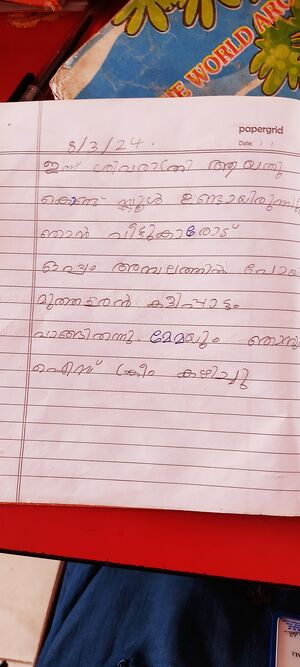 THE WORLD AROU
papergrid
Date: / /
8/3/24.
ഇന്ന് ശിവരാത്രി ആയതു
കൊണ്ട് സ്കൂൾ ഉണ്ടായിരുന്നി
ഞാൻ വീട്ടുകാരോട്
ഒപ്പം അമ്പലത്തിൽ പോയ
മുത്തച്ഛൻ കളിപ്പാട്ടം
വാങ്ങിതന്നു. മേമയും ഞാനു
ഐസ് ക്രീം കഴിച്ചു